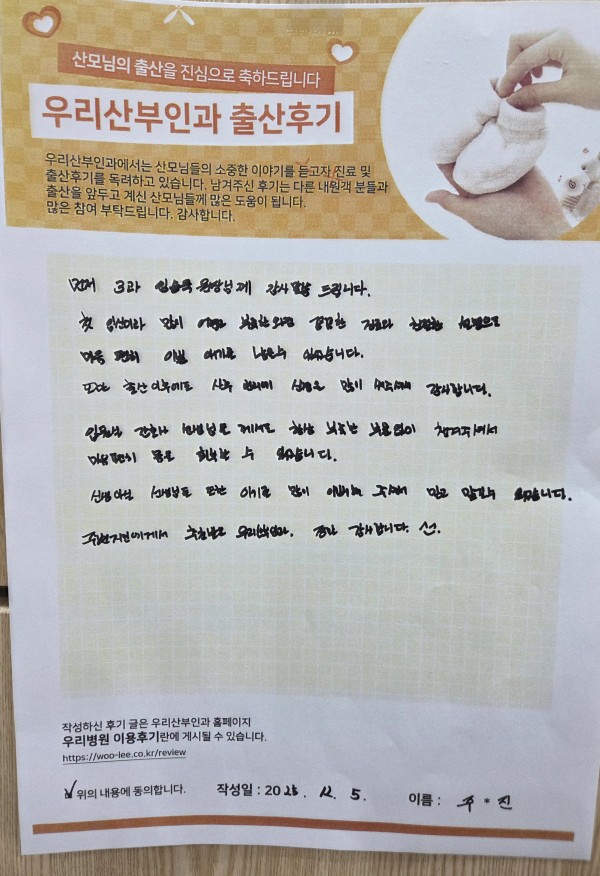 산모님의 출산을 진심으로 축하드립니다
우리산부인과 출산후기
우리산부인과에서는 산모님들의 소중한 이야기를 듣고자 진료 및
출산후기를 독려하고 있습니다. 남겨주신 후기는 다른 내원객 분들과
출산을 앞두고 계신 산모님들께 많은 도움이 됩니다.
많은 참여 부탁드립니다. 감사합니다.
먼저 3과 원장님께 감사말씀 드립니다.
첫 임신이라 많이 부족한 꼼꼼한 진료와 친절한 설명으로
마음 편히 이쁜 아기를 낳을수 있었습니다.
또한 출산 이후에도 산후 관리에 신경을 많이 써주셔서 감사합니다.
입원실 간호사 선생님들 께서도 항상 부족함 없이 챙겨주셔서
마음편히 몸을 회복할 수 있었습니다.
신생아실 선생님들 또한 아기를 많이 이뻐해 주셔서 믿고 맡길수 있었습니다.
주변지인에게서 추천받은 우리산부인과. 정말 감사합니다.
작성하신 후기 글은 우리산부인과 홈페이지
우리병원 이용후기란에 게시될 수 있습니다.
https://woo-lee.co.kr/review
위의 내용에 동의합니다. 작성일 : 2025. 12. 5. 이름 : 주 * 진